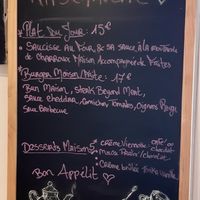 * Plat Du Jour : 15€
- Saucisse Au Four & sa sauce à la moutarde
de Charroux Maison Accompagnée de Frites
* Burger Maison/Frites : 17€
Bun Maison, steak Beyond Meat,
sauce cheddar, cornichon, Tomates, Oignons Rouges
Sauce Barbecue
Desserts Maison 5€
* crème Viennoise café/ou chocolat
* crème brûlée Vanille
Bon Appétit ♡